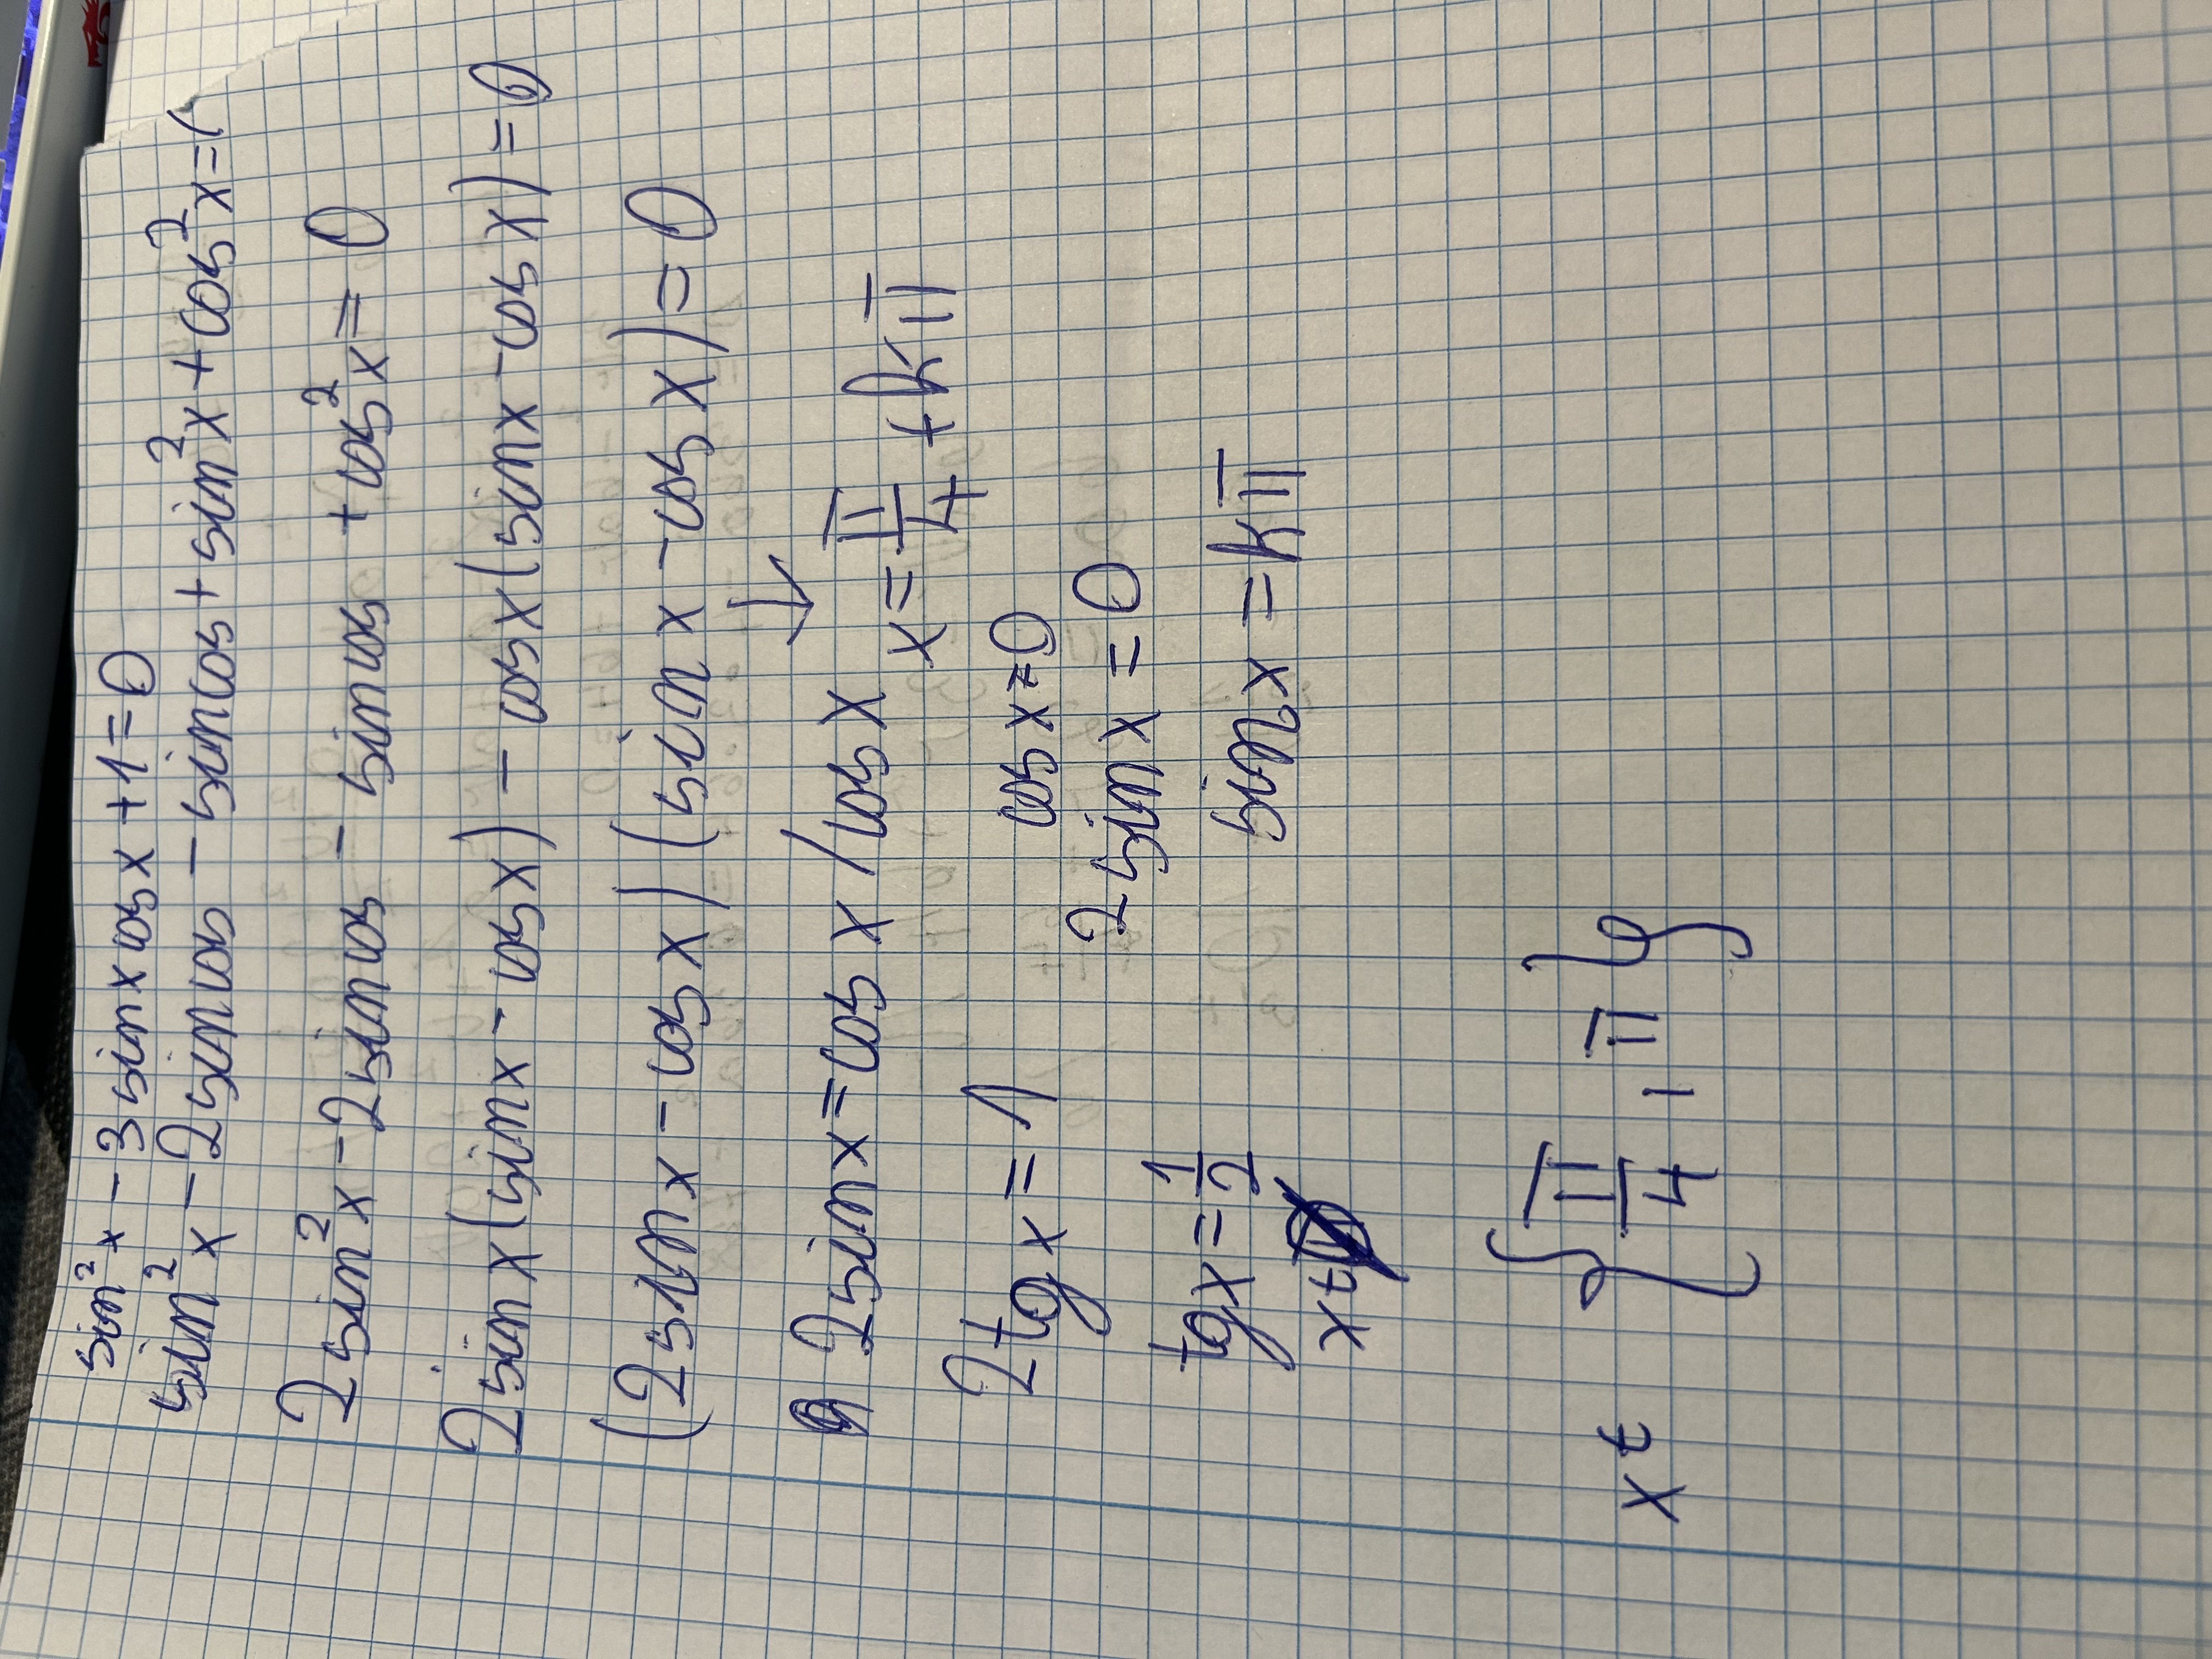 sin² x - 3 sin x cos x + 1 = 0
sin² x - 2 sin cos - sin cos + sin² x + cos² x = 0
2 sin² x - 2 sin cos - sin cos + cos² x = 0
2 sin x (sin x - cos x) - cos x (sin x - cos x) = 0
(2 sin x - cos x) (sin x - cos x) = 0
2 sin x = cos x / cos x
↓
x = π/4 + kπ
2 tg x = 1
cos x = 0
2 sin x = 0
tg x = 1/2
sin x = kπ
x ∈
x ∈ { π/4 , π }